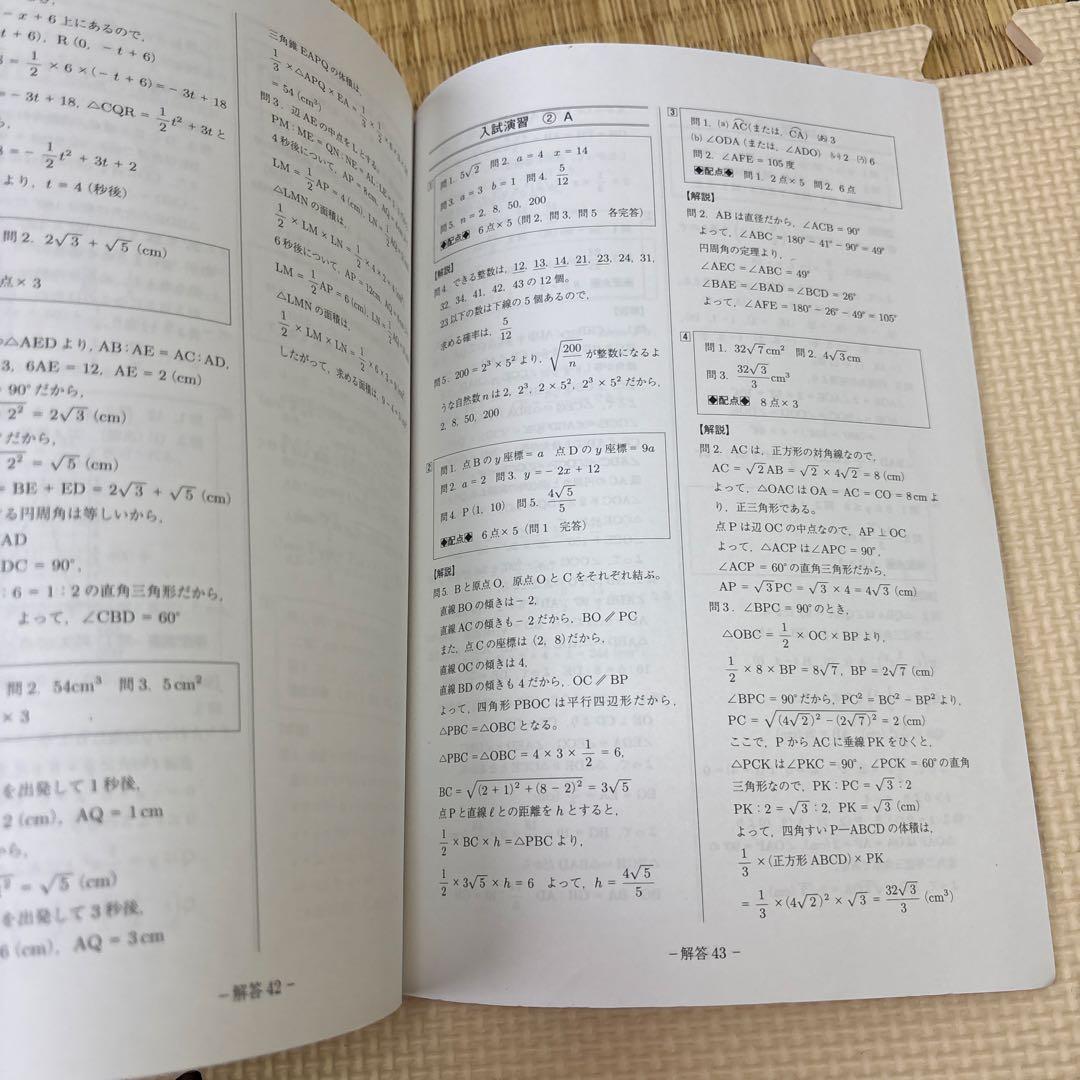 －x＋6上にあるので，
t＋6)，R(0，－t＋6)
＝1/2×6×(－t＋6)＝－3t＋18
＝－3t＋18，△CQR＝1/2t²＋3tと
＝－1/2t²＋3t＋2
より，t＝4(秒後)
問2．2√3＋√5(cm)
点×3
△AEDより，AB：AE＝AC：AD，
3，6AE＝12，AE＝2(cm)
＝90°だから，
2²＝2√3(cm)
だから，
2²＝√5(cm)
＝BE＋ED＝2√3＋√5(cm)
る円周角は等しいから，
AD
DC＝90°，
：6＝1：2の直角三角形だから，
よって，∠CBD＝60°
問2．54cm³ 問3．5cm²
×3
を出発して1秒後，
2(cm)，AQ＝1cm
から，
²＝√5(cm)
を出発して3秒後，
6(cm)，AQ＝3cm
三角錐EAPQの体積は，
1/3×△APQ×EA＝1/3×1/2×
＝54(cm³)
問3．辺AEの中点をLとする。
PM：ME＝QN：NE＝AL：LE＝
4秒後について，AP＝8cm，AQ
LM＝1/2AP＝4(cm)，LN＝1/2
△LMNの面積は，
1/2×LM×LN＝1/2×4×2
6秒後について，AP＝12cm，AQ
LM＝1/2AP＝6(cm)，LN＝1/2
△LMNの面積は，
1/2×LM×LN＝1/2×6×3＝9
したがって，求める面積は，9－4＝
－解答42－
入試演習 ② A
1
問1．5√2 問2．a＝4 x＝14
問3．a＝3 b＝1 問4．5/12
問5．n＝2，8，50，200
◆配点◆ 6点×5(問2，問3，問5 各完答)
【解説】
問4．できる整数は，12，13，14，21，23，24，31，
32，34，41，42，43の12個。
23以下の数は下線の5個あるので，
求める確率は，5/12
問5．200＝2³×5²より，√(200/n)が整数になるよ
うな自然数nは2，2³，2×5²，2³×5²だから，
2，8，50，200
2
問1．点Bのy座標＝a 点Dのy座標＝9a
問2．a＝2 問3．y＝－2x＋12
問4．P(1，10) 問5．4√5/5
◆配点◆ 6点×5(問1 完答)
【解説】
問5．Bと原点O，原点OとCをそれぞれ結ぶ。
直線BOの傾きは－2，
直線ACの傾きも－2だから，BO∥PC
また，点Cの座標は(2，8)だから，
直線OCの傾きは4，
直線BDの傾きも4だから，OC∥BP
よって，四角形PBOCは平行四辺形だから，
△PBC＝△OBCとなる。
△PBC＝△OBC＝4×3×1/2＝6，
BC＝√((2＋1)²＋(8－2)²)＝3√5
点Pと直線ℓとの距離をhとすると，
1/2×BC×h＝△PBCより，
1/2×3√5×h＝6 よって，h＝4√5/5
3
問1．(a) AC(または，CA) (あ)3
(b) ∠ODA(または，∠ADO) (い)2 (う)6
問2．∠AFE＝105度
◆配点◆ 問1．2点×5 問2．6点
【解説】
問2．ABは直径だから，∠ACB＝90°
よって，∠ABC＝180°－41°－90°＝49°
円周角の定理より，
∠AEC＝∠ABC＝49°
∠BAE＝∠BAD＝∠BCD＝26°
よって，∠AFE＝180°－26°－49°＝105°
4
問1．32√7cm² 問2．4√3cm
問3．32√3/3cm³
◆配点◆ 8点×3
【解説】
問2．ACは，正方形の対角線なので，
AC＝√2AB＝√2×4√2＝8(cm)
よって，△OACはOA＝AC＝CO＝8cmよ
り，正三角形である。
点Pは辺OCの中点なので，AP⊥OC
よって，△ACPは∠APC＝90°，
∠ACP＝60°の直角三角形だから，
AP＝√3PC＝√3×4＝4√3(cm)
問3．∠BPC＝90°のとき，
△OBC＝1/2×OC×BPより，
1/2×8×BP＝8√7，BP＝2√7(cm)
∠BPC＝90°だから，PC²＝BC²－BP²より，
PC＝√((4√2)²－(2√7)²)＝2(cm)
ここで，PからACに垂線PKをひくと，
△PCKは∠PKC＝90°，∠PCK＝60°の直角
三角形なので，PK：PC＝√3：2
PK：2＝√3：2，PK＝√3(cm)
よって，四角すいP—ABCDの体積は，
1/3×(正方形ABCD)×PK
＝1/3×(4√2)²×√3＝32√3/3(cm³)
－解答43－